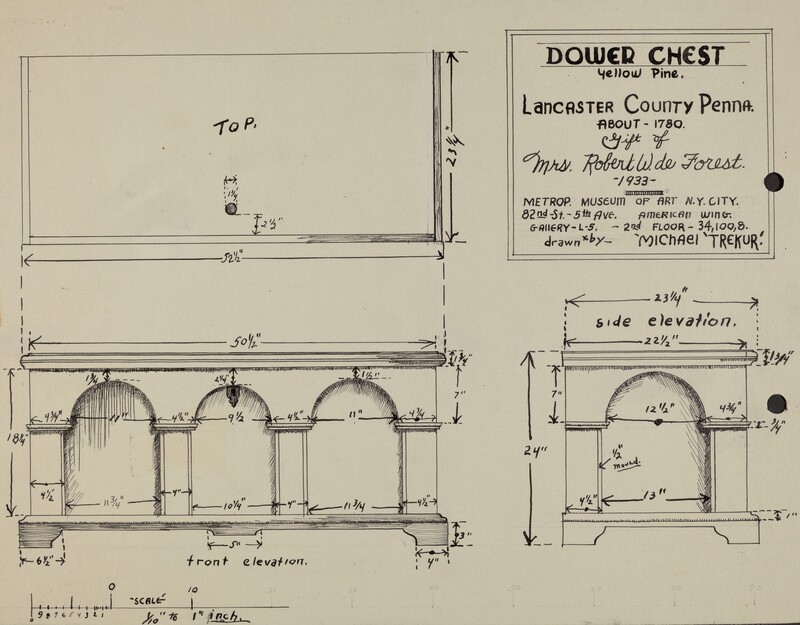 DOWER CHEST
Yellow Pine.
LANCASTER COUNTY PENNA.
ABOUT - 1780.
Gift of
Mrs. Robert W. de Forest.
-1933-
METROP. MUSEUM OF ART N.Y. CITY.
82nd St. - 5th Ave. AMERICAN WING.
GALLERY - L-5. - 2nd FLOOR - 34,100,8.
drawn by - MICHAEL TREKUR.
TOP.
1¼
2½"
23¼"
52½"
50½"
1¾"
1¾"
2¼"
1½"
7"
4¾"
11"
4½"
9½
4½"
11"
4¾
18¼"
4½"
11¾"
4"
10¼"
4"
11¾
4½"
6½"
5"
4"
3"
front elevation.
23¼"
side elevation.
22½"
1¾"
7"
12½"
4¾"
¾"
24"
½"
mound.
4½"
13"
1"
0 10
"SCALE"
9 8 7 6 5 4 3 2 1
0
1/10" to 1" inch.